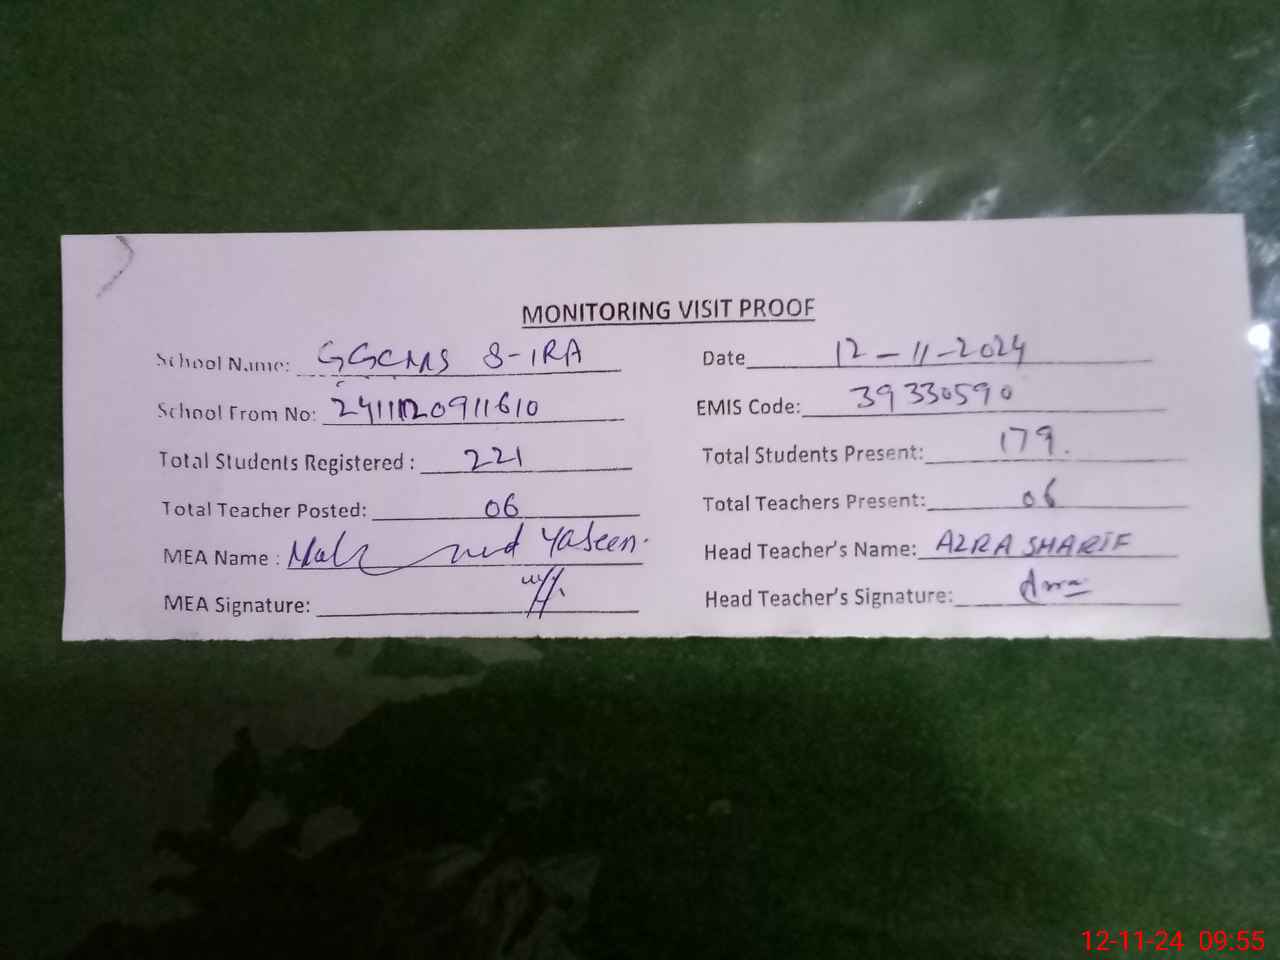 MONITORING VISIT PROOF
School Name: GGCMS 8-1RA Date 12-11-2024
School From No: EMIS Code: 39330590
Total Students Registered : 221 Total Students Present: 179.
Total Teacher Posted: 06 Total Teachers Present: 06
MEA Name : Yaseen. Head Teacher's Name: AZRA SHARIF
MEA Signature: Head Teacher's Signature:
12-11-24 09:55